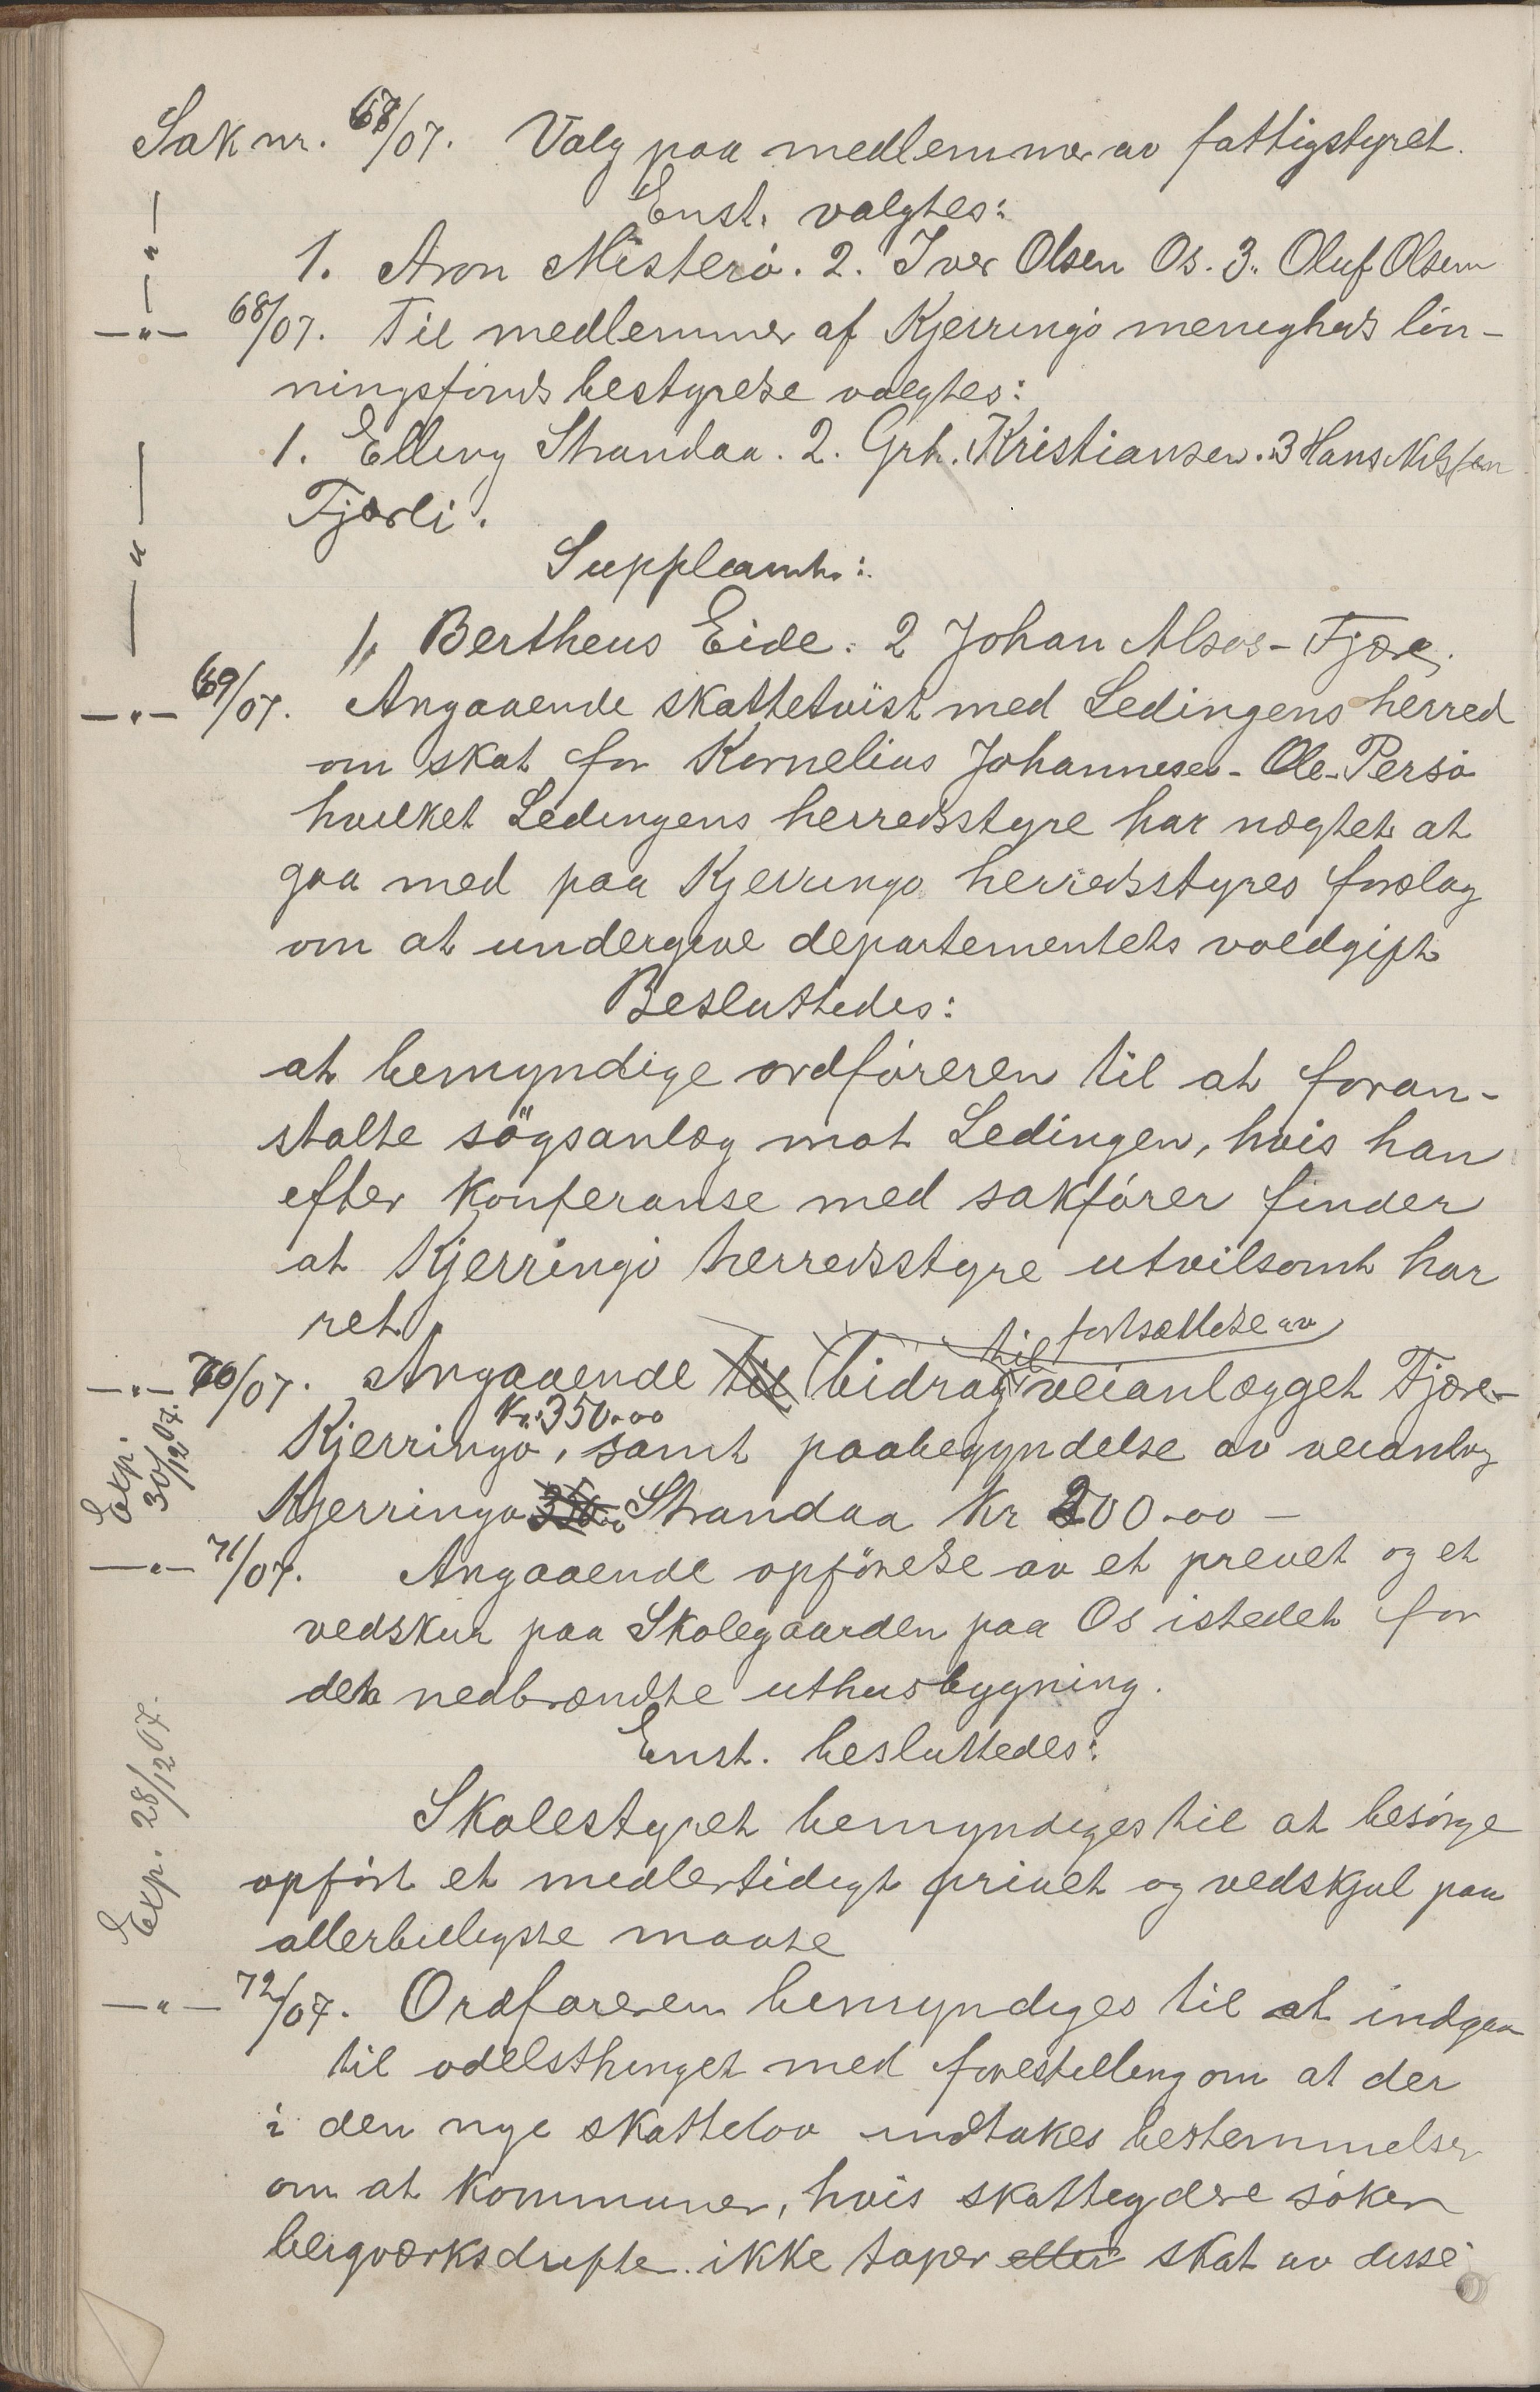 Sak nr. 67/07. Valg paa medlemmer av fattigstyret.
Enst. valgtes:
1. Aron Misterö. 2. Iver Olsen Os. 3. Oluf Olsen
— " — 68/07. Til medlemmer af Kjerringö menigheds lön-
ningsfonds bestyrelse valgtes:
1. Elling Strandaa. 2. Grh. Kristiansen. 3 Hans Nilssen
Fjærli.
Suppleanter:
1, Bertheus Eide. 2 Johan Alsos - Fjære.
— " — 69/07. Angaaende skattetvist med Ledingens herred
om skat for Kornelius Johannesen - Ole Persö
hvilket Ledingens herredsstyre har nægtet at
gaa med paa Kjerringö herredsstyres forslag
om at undergive departementets voldgift
Besluttedes:
at bemyndige ordföreren til at foran-
stalte sögsanlæg mot Ledingen, hvis han
efter konferanse med sakförer finder
at Kjerringö herredsstyre utvilsomt har
ret.
til fortsættelse av
— " — 70/07. Angaaende til bidrag veianlægget Fjære-
Kr. 350.00
Kjerringö, samt paabegyndelse av veianlæg
Kjerringö 350.00 Strandaa Kr 200.00 —
Exp. 30/12 07.
— " — 71/07. Angaaende opförelse av et prevet og et
vedskur paa Skolegaarden paa Os istedet for
den nedbrændte uthusbygning.
Enst. besluttedes:
Skolestyret bemyndiges til at besörge
opfört et medlertidigt privet og vedskjul paa
allerbilligste maate
Exp. 28/12 07.
— " — 72/07. Ordföreren bemyndiges til at indgaa
til odelsthinget med forestilling om at der
i den nye skattelov indtakes bestemmelser
om at kommuner, hvis skatteydere söker
bergværksdrifter. ikke taper eller skat av disse